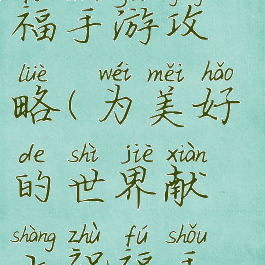 福手游攻
lüè wéi měi hǎo
略(为美好
de shì jiè xiàn
的世界献
shàng zhù fú shǒu
上祝福手